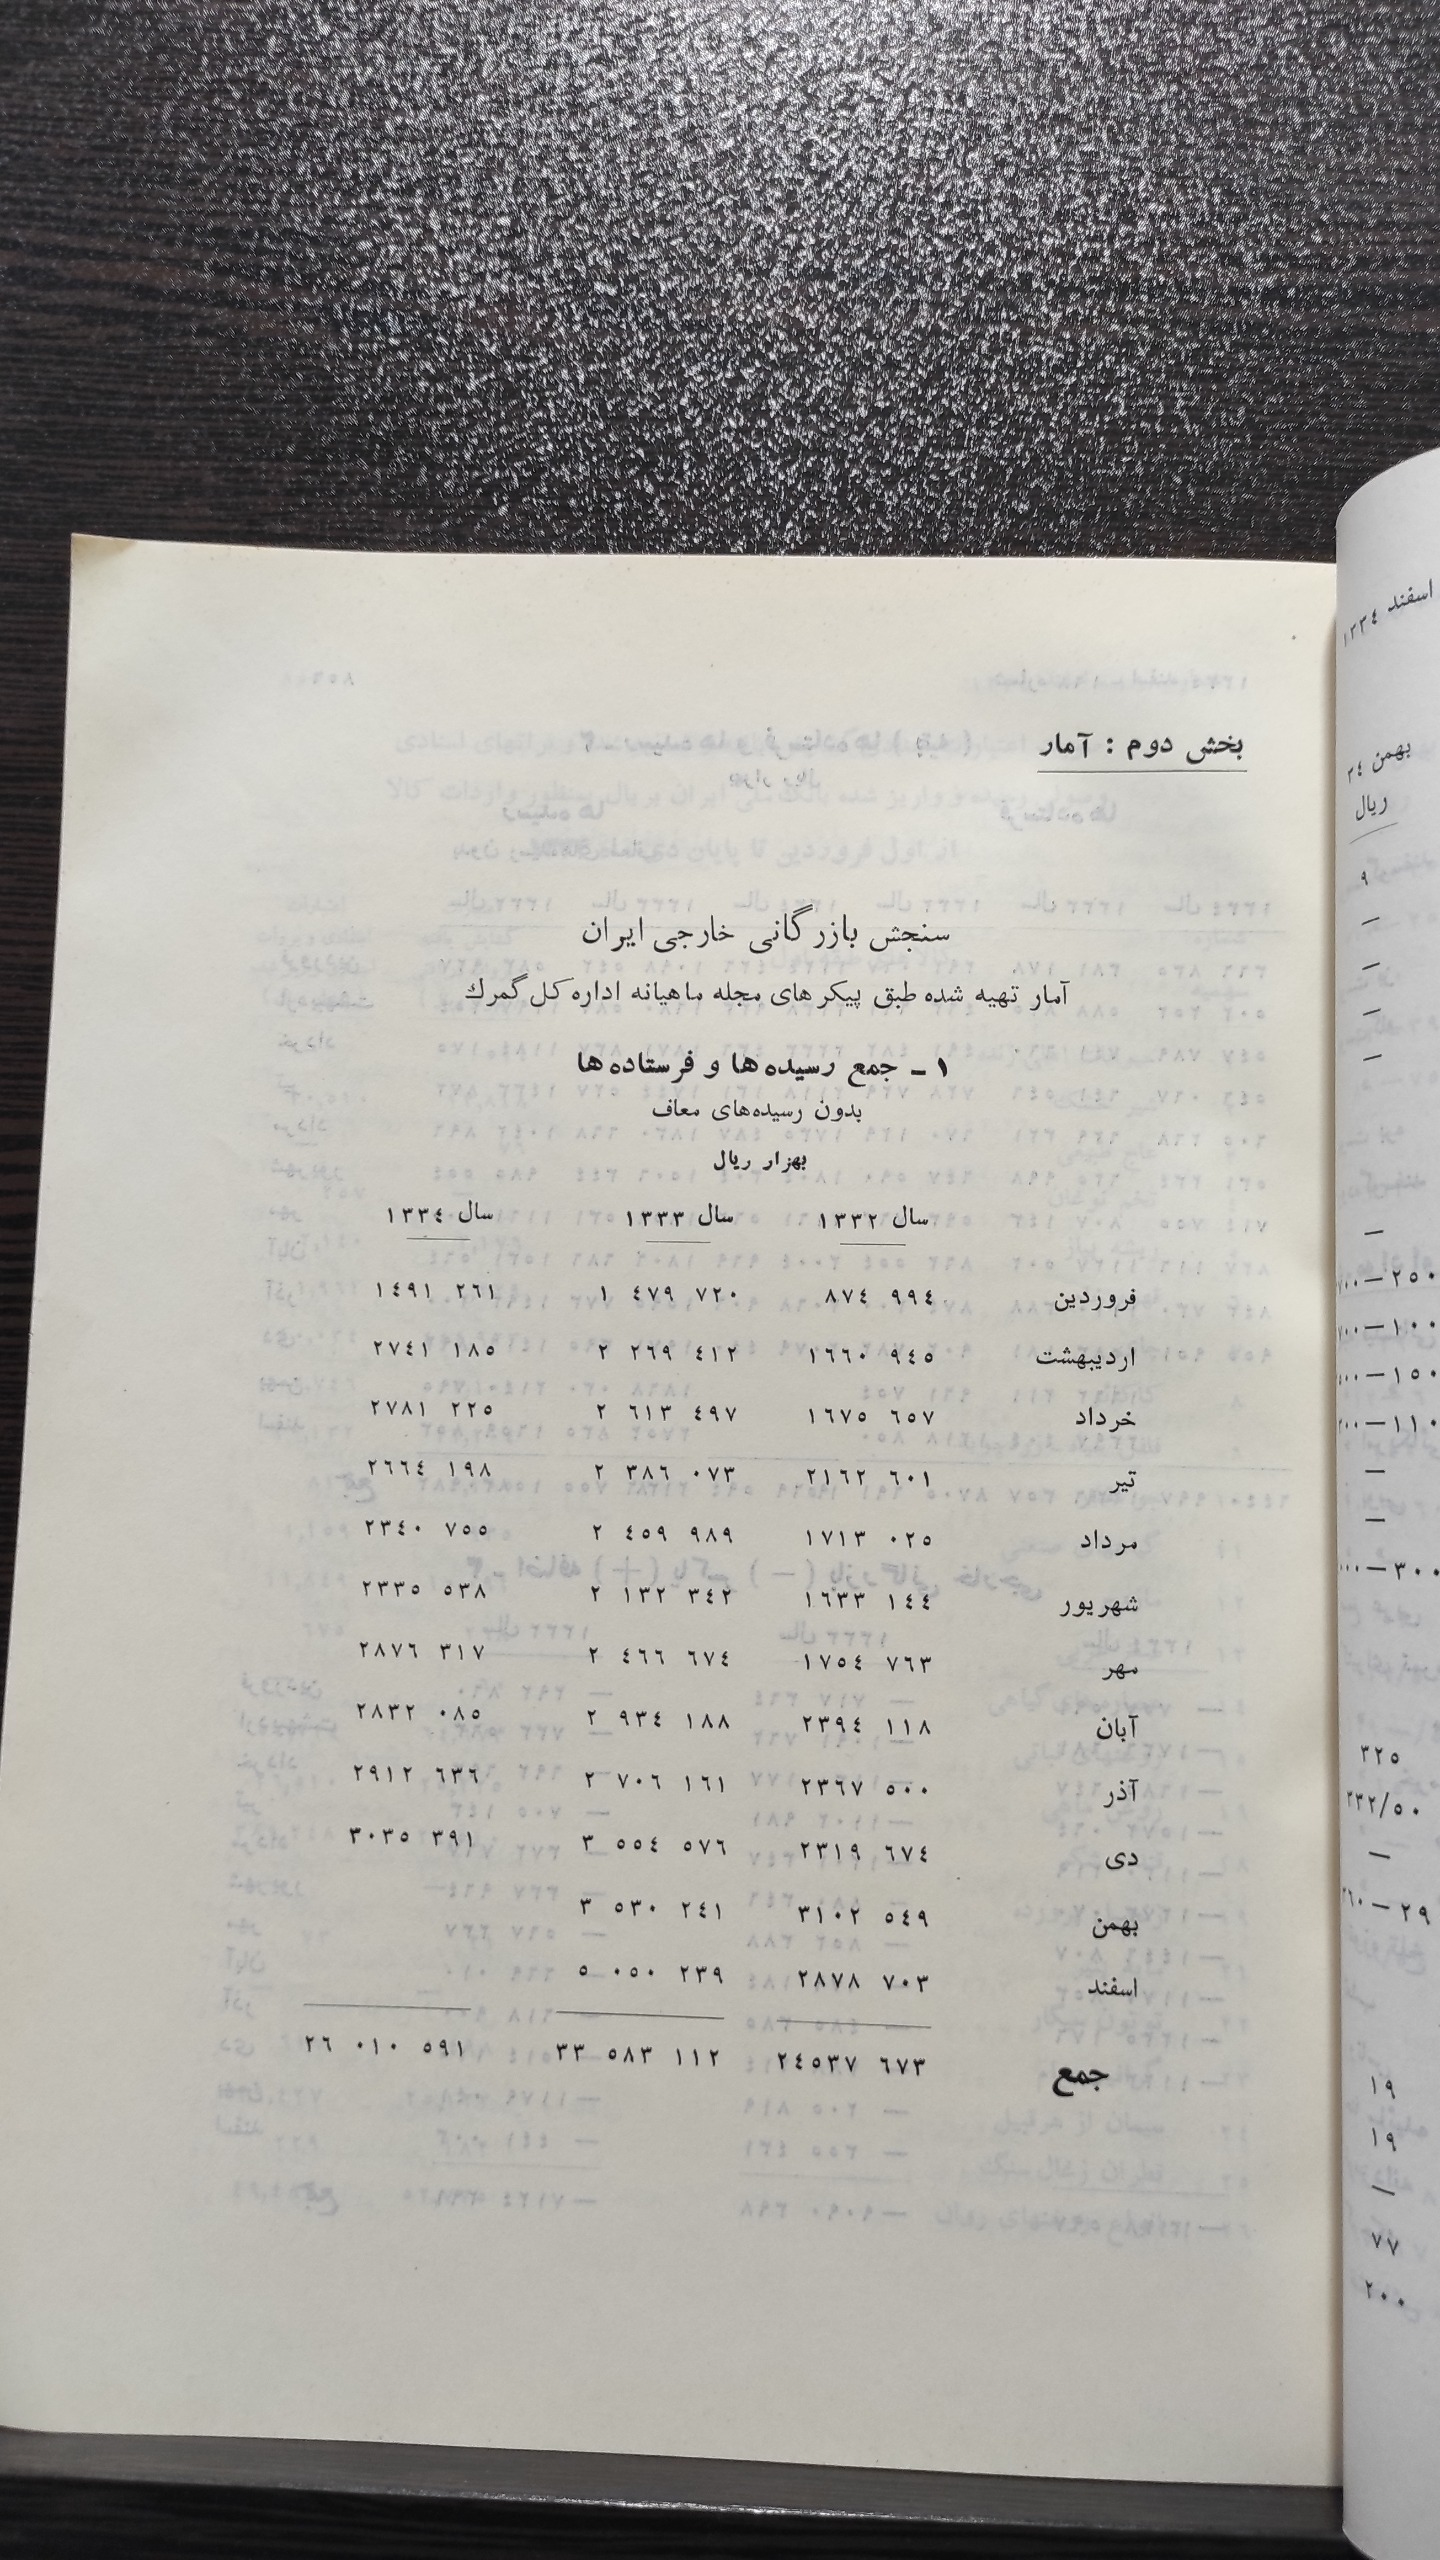 بخش دوم : آمار
سنجش بازرگانی خارجی ایران
آمار تهیه شده طبق پیکر های مجله ماهیانه اداره کل گمرك
۱ - جمع رسیده ها و فرستاده ها
بدون رسیده‌های معاف
بهزار ریال
سال ۱۳۳۲ سال ۱۳۳۳ سال ۱۳۳٤
فروردین ۸۷٤ ۹۹٤ ۱ ٤۷۹ ۷۲۰ ۱٤۹۱ ۲٦۱
اردیبهشت ۱٦٦۰ ۹٤٥ ۲ ۲٦۹ ٤۱۲ ۲۷٤۱ ۱۸٥
خرداد ۱٦۷٥ ٦٥۷ ۲ ٦۱۳ ٤۹۷ ۲۷۸۱ ۲۲٥
تیر ۲۱٦۲ ٦۰۱ ۲ ۳۸٦ ۰۷۳ ۲٦٦٤ ۱۹۸
مرداد ۱۷۱۳ ۰۲٥ ۲ ٤٥۹ ۹۸۹ ۲۳٤۰ ۷٥٥
شهریور ۱٦۳۳ ۱٤٤ ۲ ۱۳۲ ۳٤۲ ۲۳۳٥ ٥۳۸
مهر ۱۷٥٤ ۷٦۳ ۲ ٤٦٦ ٦۷٤ ۲۸۷٦ ۳۱۷
آبان ۲۳۹٤ ۱۱۸ ۲ ۹۳٤ ۱۸۸ ۲۸۳۲ ۰۸٥
آذر ۲۳٦۷ ٥۰۰ ۲ ۷۰٦ ۱٦۱ ۲۹۱۲ ٦۳٦
دی ۲۳۱۹ ٦۷٤ ۳ ٥٥٤ ٥۷٦ ۳۰۳٥ ۳۹۱
بهمن ۳۱۰۲ ٥٤۹ ۳ ٥۳۰ ۲٤۱
اسفند ۲۸۷۸ ۷۰۳ ٥ ۰٥۰ ۲۳۹
جمع ۲٤٥۳۷ ٦۷۳ ۳۳ ٥۸۳ ۱۱۲ ۲٦ ۰۱۰ ٥۹۱
اسفند ۱۳۳٤
بهمن ۳٤
ریال
۹
—
—
—
—
—
۲٥۰—
۱۰۰—
۱٥۰—
۱۱۰—
—
—
۳۰۰—
۳۲٥
۲۳۲/٥۰
—
۲۹—
۱۹
۱۹
—
۷۷
۲۰۰